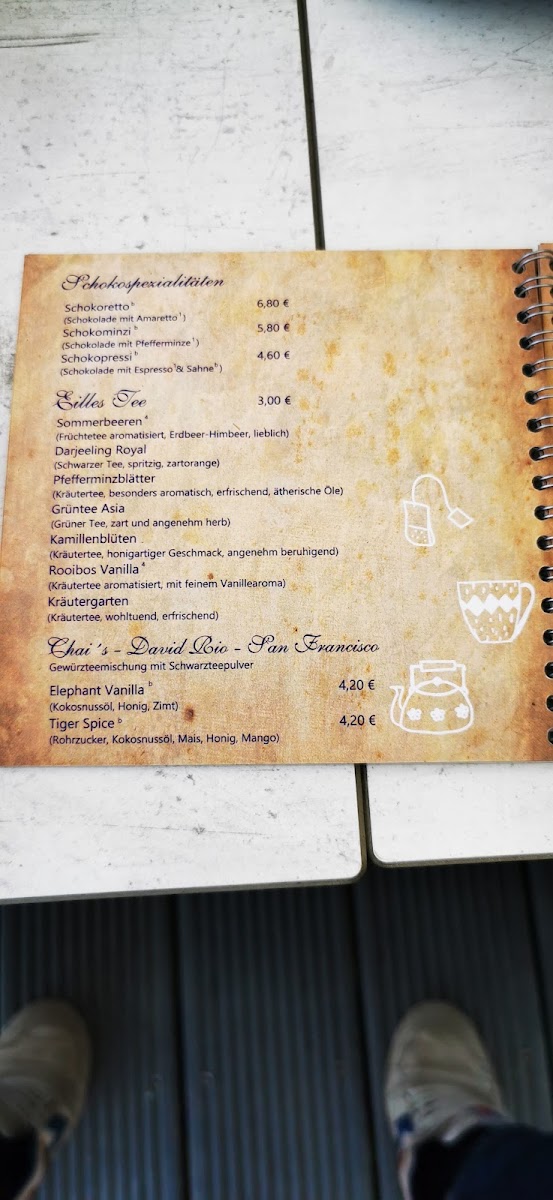 Schokospezialitäten
Schokoretto ᵇ 6,80 €
(Schokolade mit Amaretto ¹)
Schokominzi ᵇ 5,80 €
(Schokolade mit Pfefferminze ¹)
Schokopressi ᵇ 4,60 €
(Schokolade mit Espresso ¹ & Sahne ᵇ)
Eilles Tee 3,00 €
Sommerbeeren ⁴
(Früchtetee aromatisiert, Erdbeer-Himbeer, lieblich)
Darjeeling Royal
(Schwarzer Tee, spritzig, zartorange)
Pfefferminzblätter
(Kräutertee, besonders aromatisch, erfrischend, ätherische Öle)
Grüntee Asia
(Grüner Tee, zart und angenehm herb)
Kamillenblüten
(Kräutertee, honigartiger Geschmack, angenehm beruhigend)
Rooibos Vanilla ⁴
(Kräutertee aromatisiert, mit feinem Vanillearoma)
Kräutergarten
(Kräutertee, wohltuend, erfrischend)
Chai´s - David Rio - San Francisco
Gewürzteemischung mit Schwarzteepulver
Elephant Vanilla ᵇ 4,20 €
(Kokosnussöl, Honig, Zimt)
Tiger Spice ᵇ 4,20 €
(Rohrzucker, Kokosnussöl, Mais, Honig, Mango)